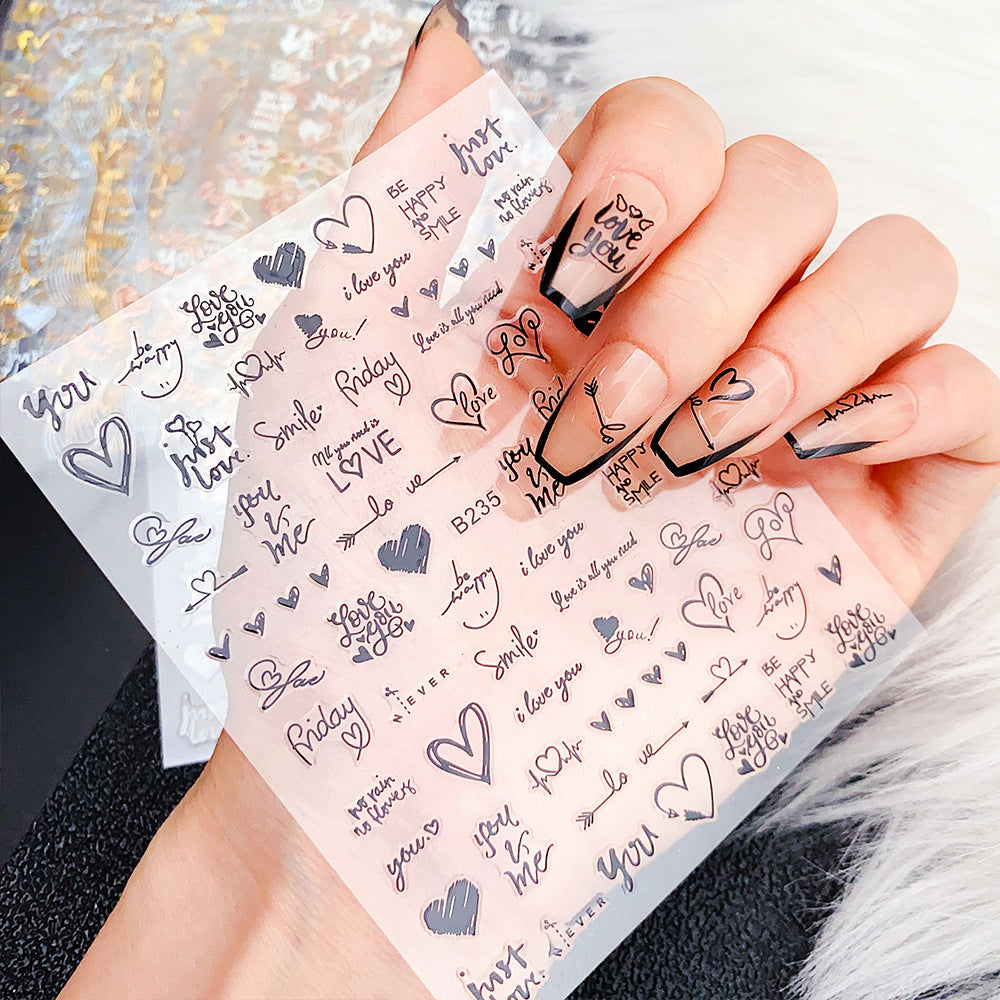 just
love.
BE
HAPPY
AND
SMILE
no rain
no flowers
i love you
Love
you
you!
Love is all you need
be
happy
you
Friday
Smile
love
All you need is
LOVE
just
love.
you
&
me
lo ve
B235
you
&
me
HAPPY
AND
SMILE
love
you
i love you
Love is all you need
be
happy
love
be
happy
Love
you
you!
Love
you
Smile
NIEVER
i love you
BE
HAPPY
AND
SMILE
Friday
lo ve
Love
you
no rain
no flowers
you
you
&
me
you
NIEVER
just
love.